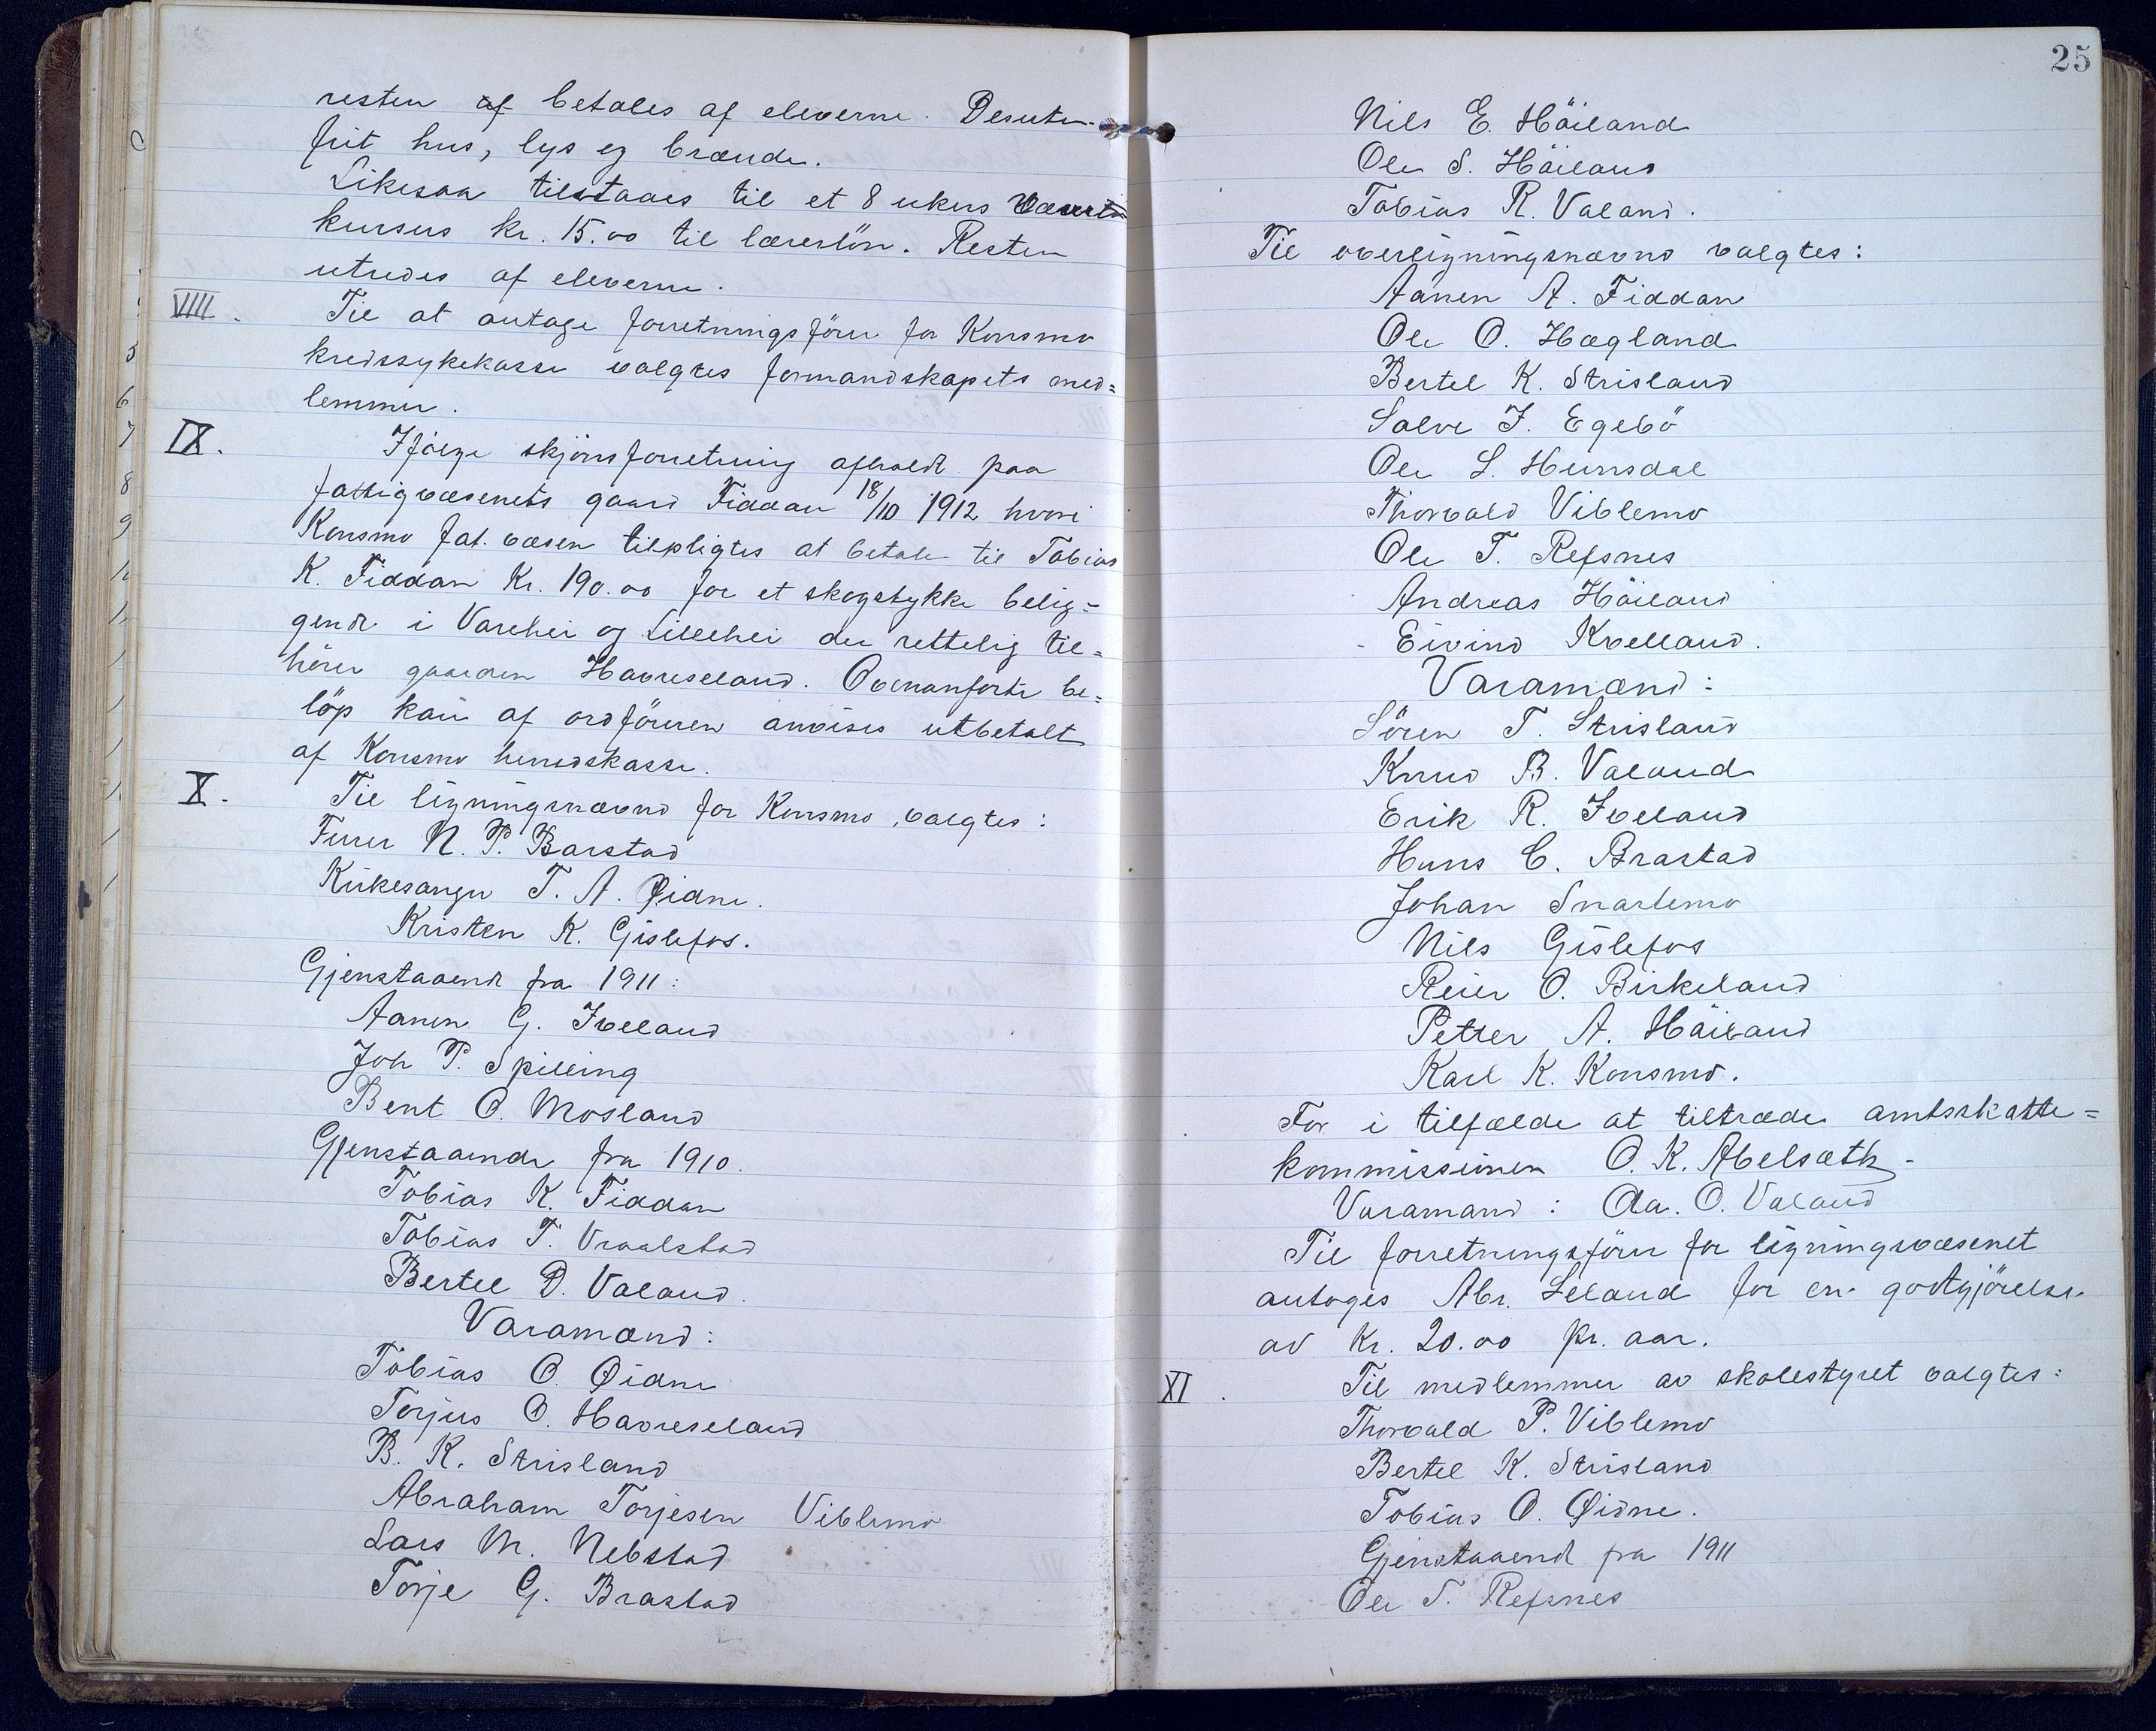 resten af betales af eleverne. Desuten
frit hus, lys og brænde.
Likesaa tilstaaes til et 8 ukers
kursus kr. 15.00 til lærerlön. Resten
utredes af eleverne.
VIIII. Til at antage forretningsförer for Konsmo
kredssykekasse valgtes formandskapets med=
lemmer.
IX. Ifölge skjönsforretning afholdt paa
fattigvæsenets gaard Fiddan 18/10 1912 hvori
Konsmo fat. væsen tilpligtes at betale til Tobias
K. Fiddan Kr. 190.00 for et skogstykke belig=
gende i Varehei og Lillehei der rettelig til=
hörer gaarden Havreseland. Ovenanförte be=
löp kan af ordföreren anvises utbetalt
af Konsmo herredskasse.
X. Til ligningsnævnd for Konsmo, valgtes:
Furer N. P. Barstad
Kirkesanger T. A. Øidne.
Kristen K. Gislefos.
Gjenstaaende fra 1911:
Aanen G. Iveland
Joh P. Spilling
Bent O. Mosland
Gjenstaaende fra 1910.
Tobias K. Fiddan
Tobias T. Vraalstad
Bertel D. Valand.
Varamænd:
Tobias O. Øidne
Torjus O. Havreseland
B. K. Strisland
Abraham Torjesen Viblemo
Lars M. Nebstad
Torje G. Brastad
25
Nils E. Häiland
Ole S. Häiland
Tobias R. Valand.
Til overligningsnævnd valgtes:
Aanen A. Fiddan
Ole O. Hægland
Bertel K. Strisland
Salve J. Egebö
Ole L. Hunsdal
Thorvald Viblemo
Ole T. Refsnes
Andreas Häiland
Eivind Kvelland.
Varamænd:
Sören T. Strisland
Knud B. Valand
Erik R. Iveland
Hans C. Brastad
Johan Snartemo
Nils Gislefos
Reier O. Birkeland
Petter A. Häiland
Karl K. Konsmo.
For i tilfælde at tiltræde amtsskatte=
kommissionen O. K. Abelsæth.
Varamand: Aa. O. Valand
Til forretningsförer for ligningsvæsenet
antoges Abr. Leland for en godtgjörelse
av Kr. 20.00 pr. aar.
XI. Til medlemmer av skolestyret valgtes:
Thorvald P. Viblemo
Bertel K. Strisland
Tobias O. Øidne.
Gjenstaaende fra 1911
Ole T. Refsnes